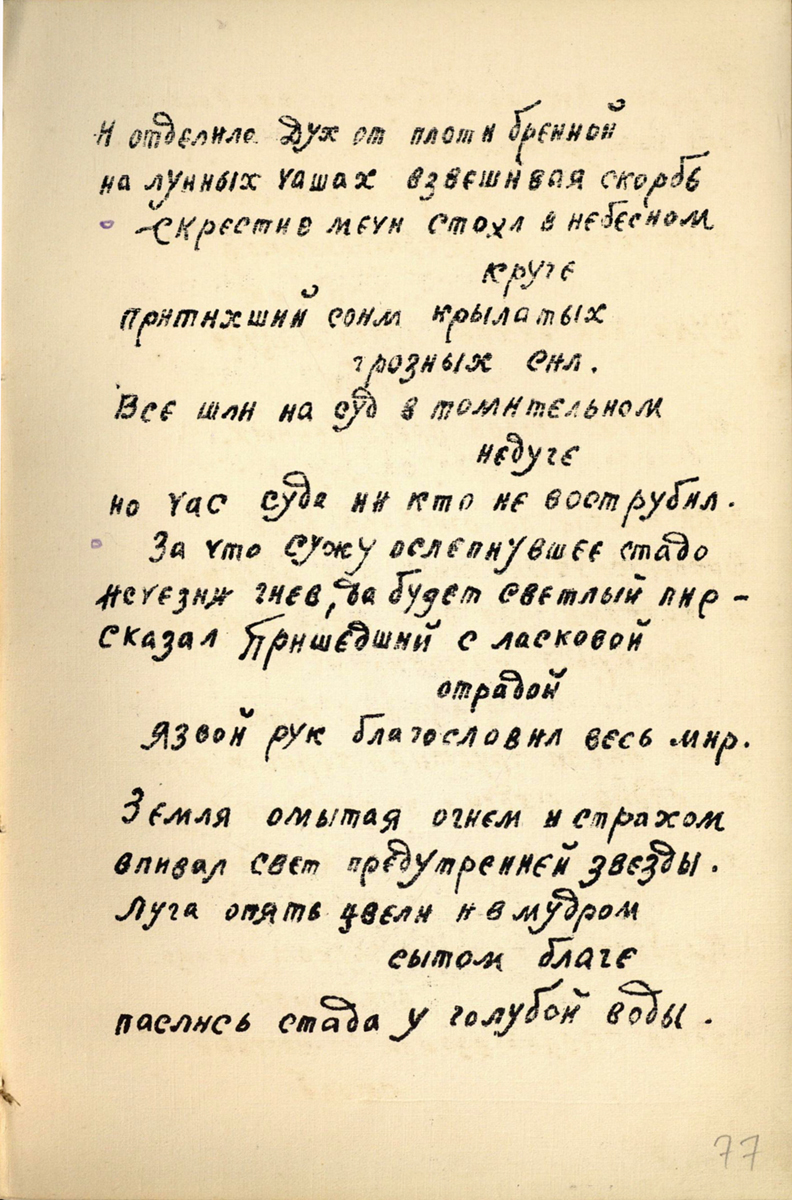 И отделила Дух от плоти бренной
на лунных чашах взвешивая скорбь
Скрестив мечи стоял в небесном
круге
притихший сонм крылатых
грозных сил.
Все шли на суд в томительном
недуге
но час суда ни кто не вострубил.
За что сужу ослепнувшее стадо
исчезни гнев, да будет светлый пир –
сказал Пришедший с ласковой
отрадой
язвой рук благословил весь мир.
Земля омытая огнем и страхом
впивал свет предутренней звезды.
Луга опять цвели и в мудром
сытом благе
паслись стада у голубой воды.
77